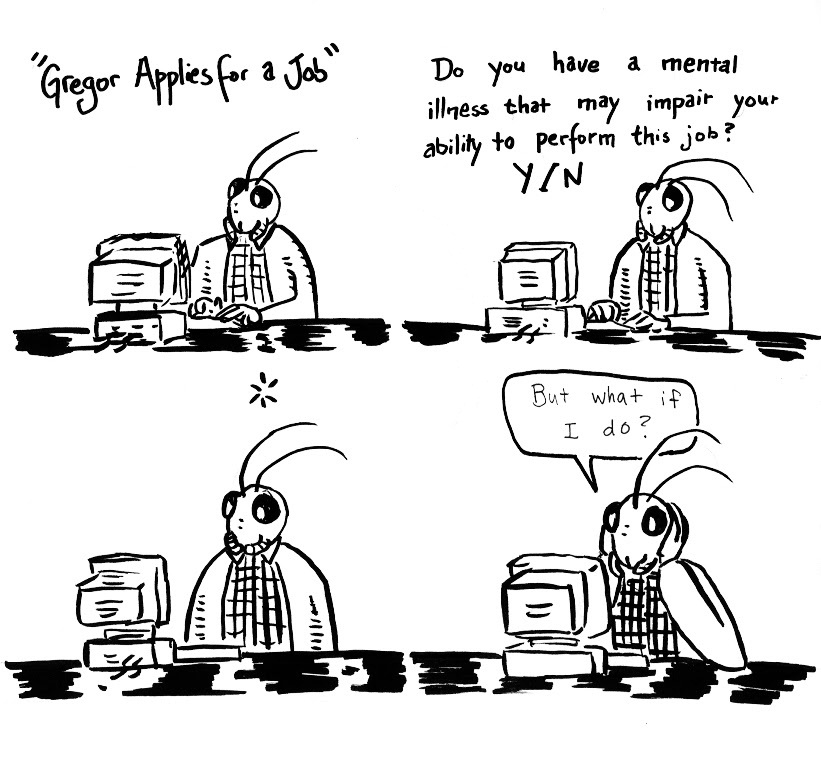 "Gregor Applies for a Job"
Do you have a mental
illness that may impair your
ability to perform this job?
Y/N
But what if
I do?